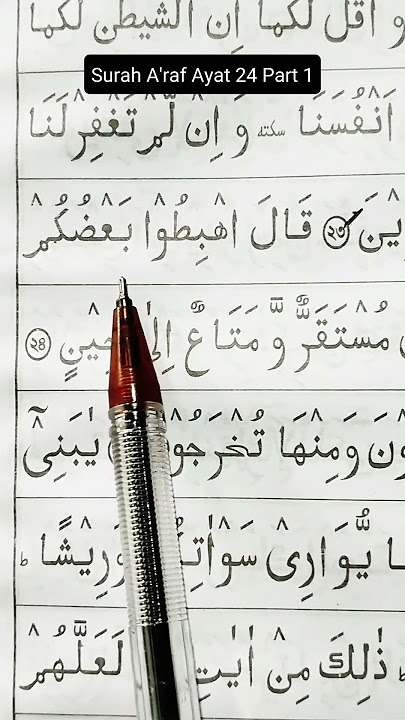 و اَقُلْ لَّكُمَاۤ اِنَّ الشَّیْطٰنَ لَكُمَا
Surah A'raf Ayat 24 Part 1
اَنْفُسَنَا سكته وَ اِنْ لَّمْ تَغْفِرْ لَنَا
یْنَ ۝۲۳ قَالَ اهْبِطُوْا بَعْضُكُمْ
مُسْتَقَرٌّ وَّ مَتَاعٌ اِلٰی حِیْنٍ ۝۲۴
وْنَ وَمِنْهَا تُخْرَجُوْ یٰبَنِیْۤ
یُّوَارِیْ سَوْاٰتِ وَرِیْشًا ؕ
ذٰلِكَ مِنْ اٰیٰتِ لَعَلَّهُمْ